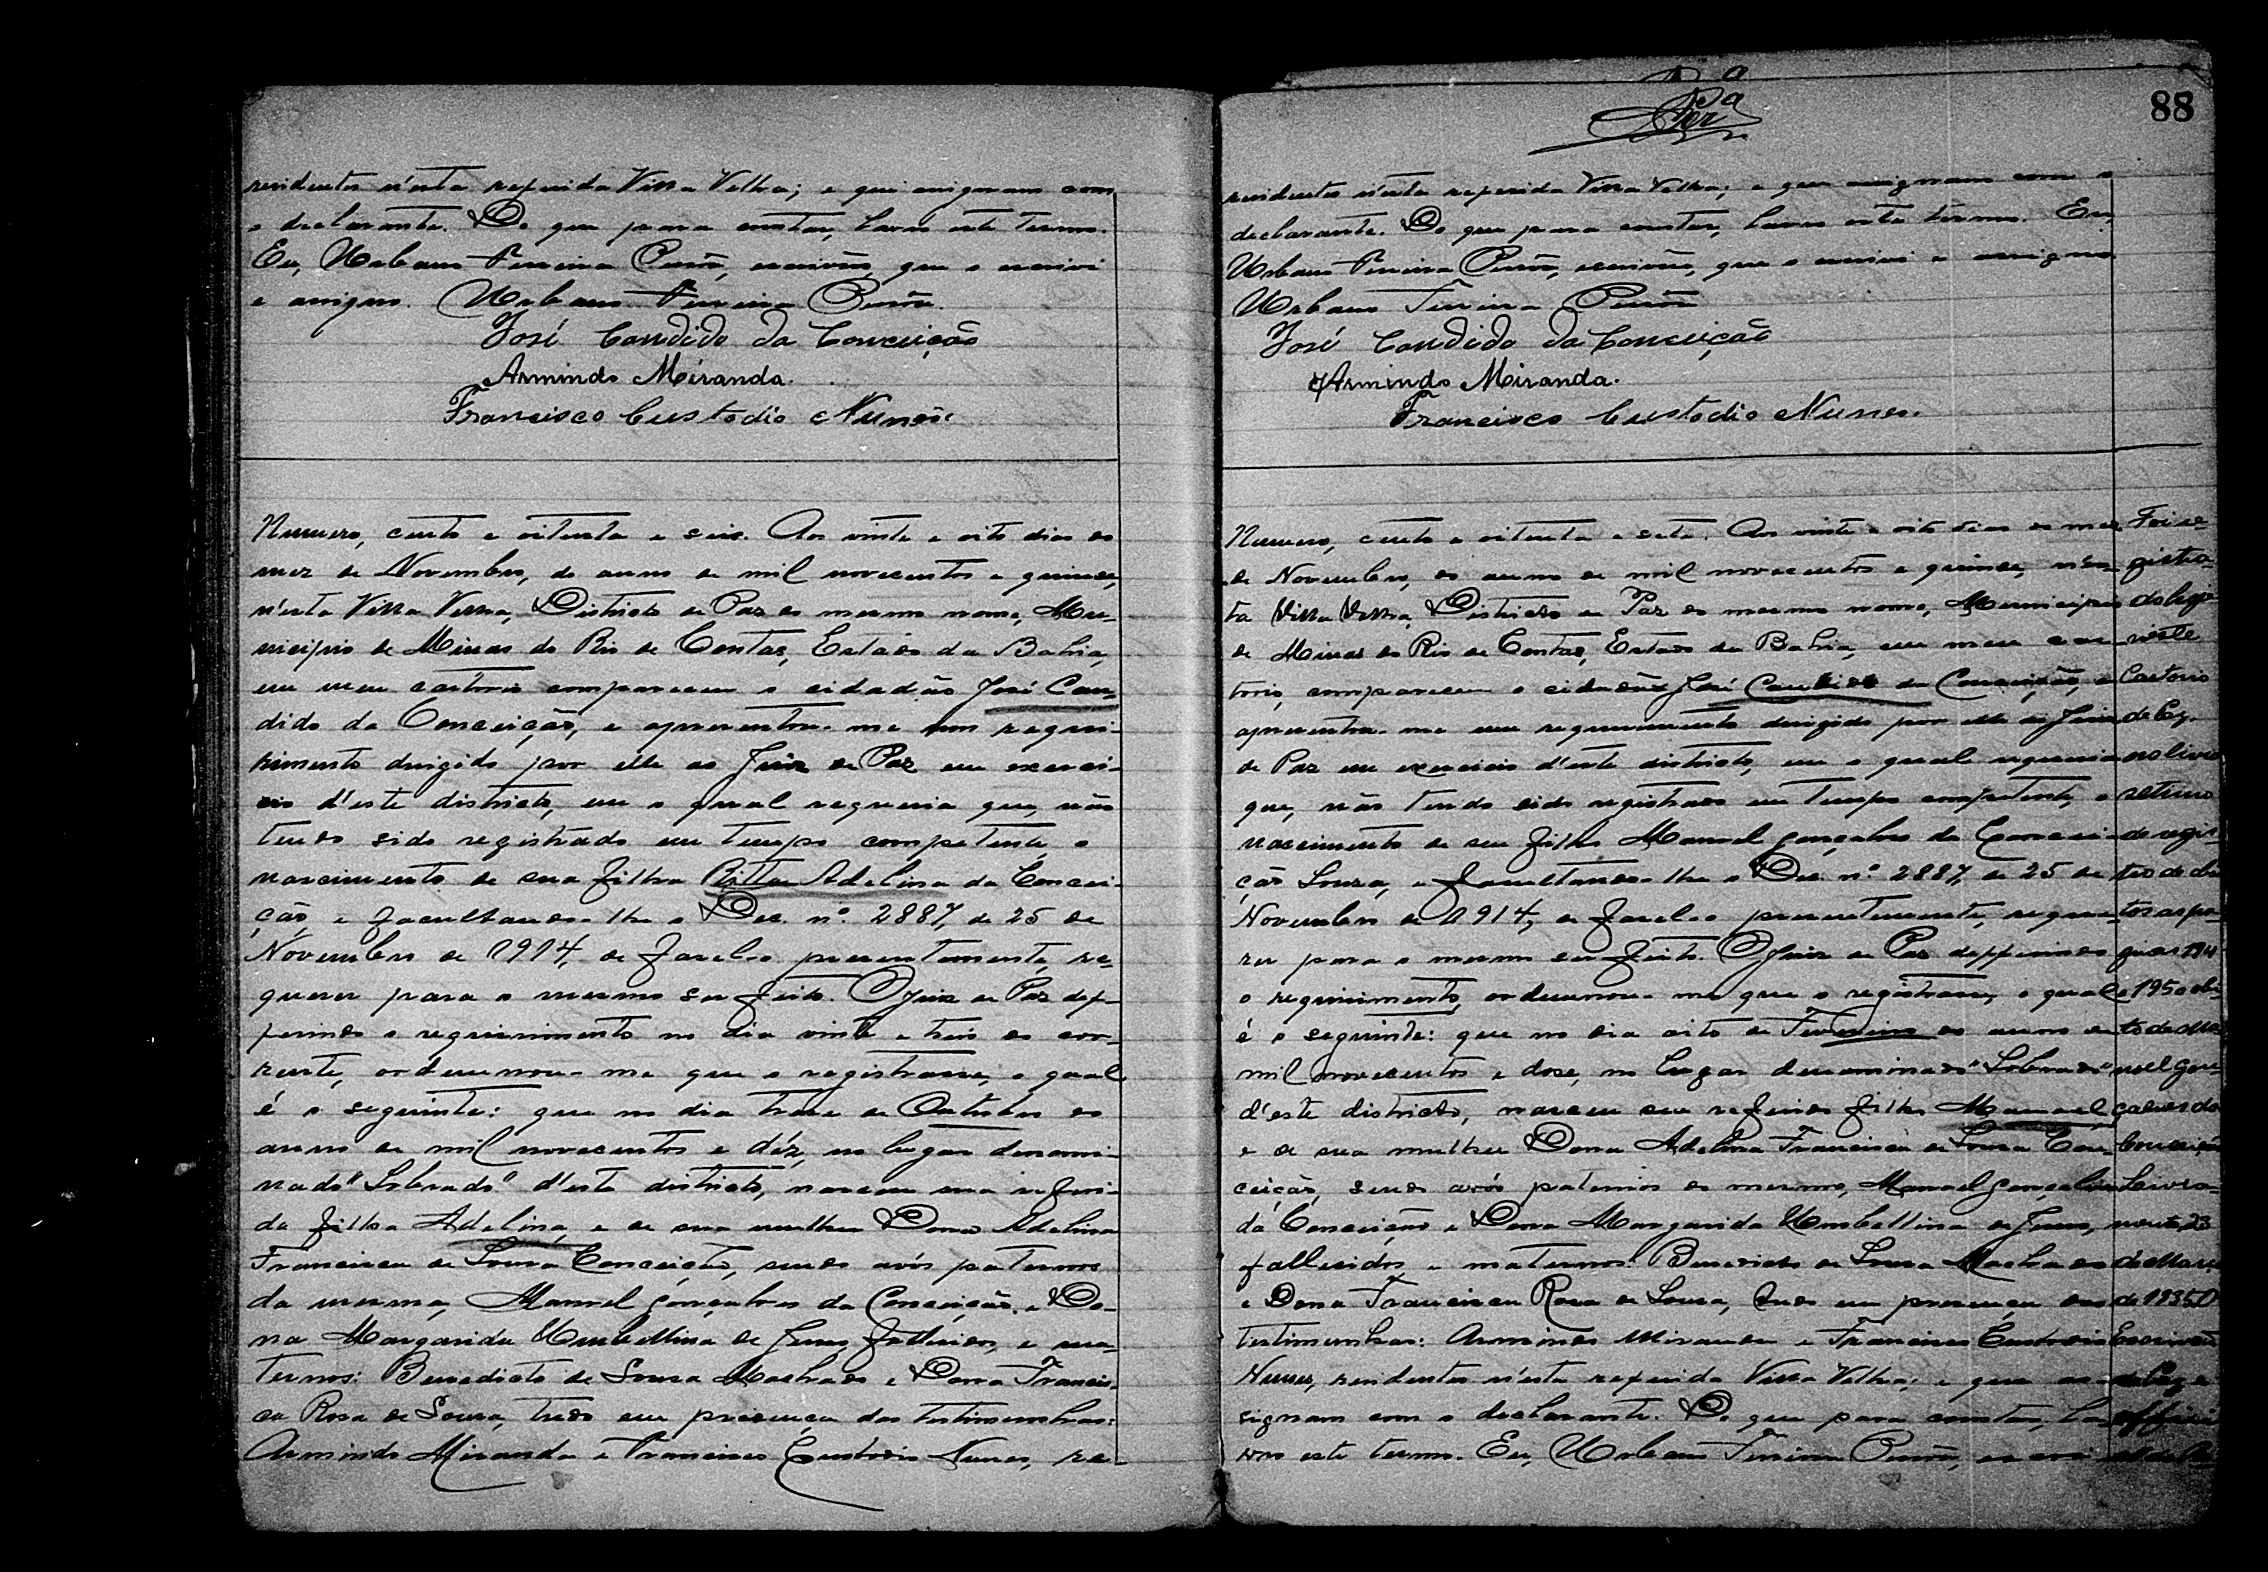 residentes n'esta referida Villa Velha; e que assignam com
o declarante. Do que para constar, lavro este termo.
Eu, Urbano Ferreira, escrivão, que o escrivi
e assigno. Urbano Ferreira
José Candido da Conceição
Armindo Miranda.
Francisco Custodio Nunes.
Numero, cento e oitenta e seis. Aos vinte e oito dias do
mez de Novembro, do anno de mil novecentos e quinze,
n'esta Villa Velha, Districto de Paz do mesmo nome, Mu-
nicipio de Minas do Rio de Contas, Estado da Bahia,
em meu cartorio compareceu o cidadão José Can-
dido da Conceição, e apresentou-me um requi-
rimento dirigido por elle ao Juiz de Paz em exerci-
cio d'este districto, em o qual requeria que, não
tendo sido registrado em tempo competente o
nascimento de sua filha Ritta Adelina da Concei-
ção e facultando-lhe o Dec. nº 2887, de 25 de
Novembro de 1914, de fazel-o presentemente, re-
querer para o mesmo ser feito. O Juiz de Paz def-
ferindo o requirimento no dia vinte e treis do cor-
rente, ordennou-me que o registrasse, o qual
é o seguinte: que no dia treze de Outubro do
anno de mil novecentos e déz, no lugar denomi-
nado "Sobrado" d'este districto, nasceu sua referi-
da filha Adelina, e de sua mulher Dona Adelina
Francisca de Souza Conceição, sendo avós paternos
da mesma, Manoel Gonçalves da Conceição e Do-
na Margarida Umbellina de Jesus, fallecidos, e ma-
ternos: Benedicto de Souza Machado e Dona Francis-
ca Rosa de Souza, tudo em presença das testimunhas:
Armindo Miranda e Francisco Custodio Nunes, re-
88
residentes n'esta referida Villa Velha; e que assignam com o
declarante. Do que para constar, lavro este termo. Eu,
Urbano Ferreira, escrivão, que o escrivi e assigno
Urbano Ferreira
José Candido da Conceição
Armindo Miranda.
Francisco Custodio Nunes.
Numero, cento e oitenta e sete. Aos vinte e oito dias do mez
de Novembro, do anno de mil novecentos e quinze, n'es-
ta Villa Velha, Districto de Paz do mesmo nome, Municipio
de Minas do Rio de Contas, Estado da Bahia, em meu car-
torio, compareceu o cidadão José Candido da Conceição, e
apresentou-me um requerimento dirigido por elle ao Juiz
de Paz em exercicio d'este districto, em o qual requeria
que, não tendo sido registrado em tempo competente, o
nascimento de seu filho Manoel Gonçalves da Concei-
ção Souza, e facultando-lhe o Dec. nº 2887, de 25 de
Novembro de 1914, de fazel-o presentemente, reque-
rer para o mesmo ser feito. O Juiz de Paz defferindo
o requirimento, ordennou-me que o registrasse, o qual
é o seguinte: que no dia oito de Fevereiro do anno de
mil novecentos e doze, no lugar denominado "Sobrado"
d'este districto, nasceu seu referido filho Manoel
e de sua mulher Dona Adelina Francisca de Souza Con-
ceição, sendo avós paternos do mesmo, Manoel Gonçalves
da Conceição e Dona Margarida Umbellina de Jesus,
fallecidos e maternos: Benedicto de Souza Machado
e Dona Francisca Rosa de Souza, tudo em presença das
testimunhas: Armindo Miranda e Francisco Custodio
Nunes, residentes n'esta referida Villa Velha; e que as-
signam com o declarante. Do que para constar, la-
vro este termo. Eu, Urbano Ferreira, escri-
Foi re-
gistra-
do
neste
Cartorio
de Paz
no livro
setimo
de regis-
tro de obi-
tos as pa-
ginas 194
e 195 o obi-
to de Ma-
noel Gon-
çalves da
Conceição
23
de Março
de 1935. O
Escrivão
de Paz e